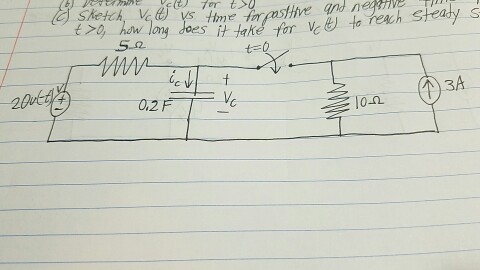 (b) Determine Vc(t) for t>0
(c) Sketch, Vc(t) vs time for positive and negative time
t>0, how long does it take for Vc(t) to reach steady s
5Ω
t=0
ic
+
20u(t)
+
-
0.2F
Vc
-
10Ω
3A